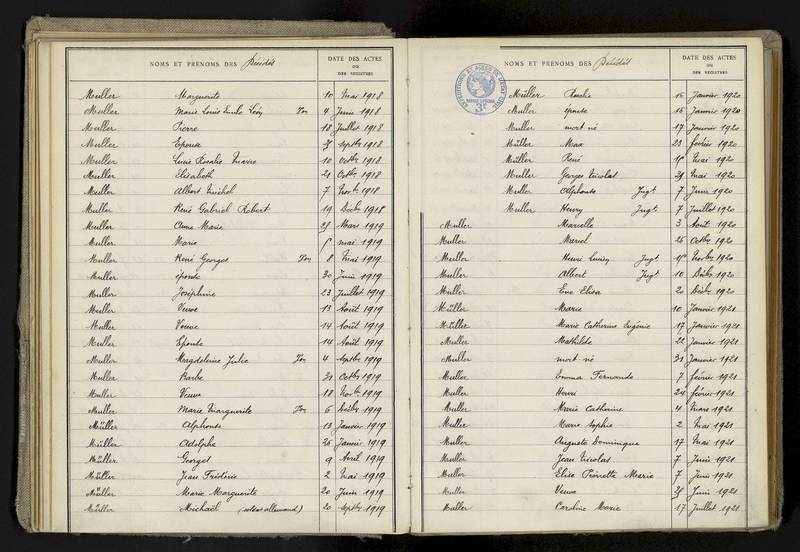 NOMS ET PRÉNOMS DES Décédés
DATE DES ACTES
OU
DES REGISTRES
Muller Marguerite 10 Mai 1918
Muller Marie Louise 4 Juin 1918
Muller Pierre 18 Juillet 1918
Muller Epouse Septbre 1918
Muller Lucie Rosalie 10 Octbre 1918
Muller Elisabeth 21 Octbre 1918
Muller Albert Michel 7 Novbre 1918
Muller René Gabriel Robert 19 Décbre 1918
Muller Anne Marie Mars 1919
Muller Marie mai 1919
Muller René Georges 8 Mai 1919
Muller épouse 30 Juin 1919
Muller Joséphine 23 Juillet 1919
Muller Veuve 13 Août 1919
Muller Veuve 14 Août 1919
Muller Epouse 14 Août 1919
Muller Magdeleine Julie 4 Septbre 1919
Muller Barbe 31 Octbre 1919
Muller Veuve 18 Novbre 1919
Muller Marie Marguerite 6 Décbre 1919
Müller Alphonse 13 Janvier 1919
Müller Adolphe 26 Janvier 1919
Müller Georges 9 Avril 1919
Müller Jean Frédéric 2 Mai 1919
Müller Marie Marguerite 20 Juin 1919
Müller Michaël (soldat allemand) 20 Septbre 1919
NOMS ET PRÉNOMS DES Décédés
DATE DES ACTES
OU
DES REGISTRES
3F
Müller Rosalie 15 Janvier 1920
Muller épouse 15 Janvier 1920
Muller mort né 17 Janvier 1920
Müller Max 23 février 1920
Müller René Mai 1920
Muller Georges Nicolas Mai 1920
Muller Alphonse Jugt 7 Juin 1920
Muller Henry Jugt 7 Juillet 1920
Muller Marcelle 3 Août 1920
Muller Marcel 26 Octbre 1920
Muller Henri Jugt Novbre 1920
Muller Albert Jugt 10 Décbre 1920
Muller Eve Elisa 20 Décbre 1920
Müller Marie 10 Janvier 1921
Müller Marie Catherine Eugénie 17 Janvier 1921
Muller Mathilde 22 Janvier 1921
Muller mort né 31 Janvier 1921
Muller Emma Fernande 7 février 1921
Muller Henri 24 février 1921
Muller Marie Catherine 4 Mars 1921
Muller Marie Sophie 2 Mai 1921
Muller Auguste Dominique 17 Mai 1921
Muller Jean Nicolas 7 Juin 1921
Muller Elise Pierrette Marie 7 Juin 1921
Muller Veuve Juin 1921
Muller Caroline Marie 17 Juillet 1921